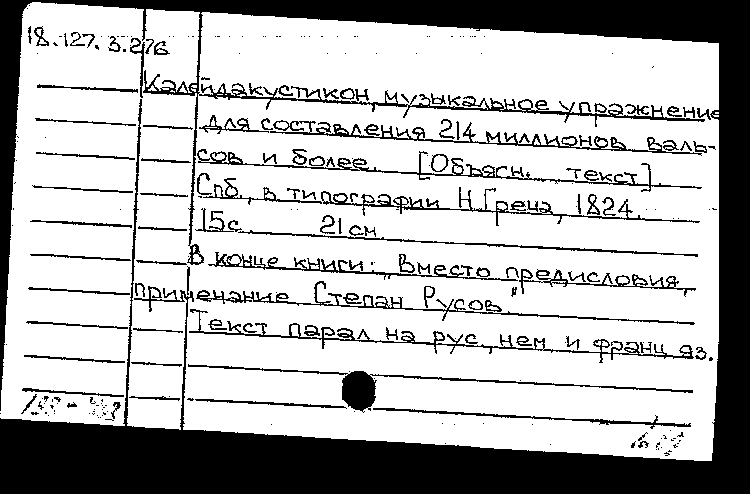 18.127.3.276
Калейдакустикон, музыкальное упражнение
для составления 214 миллионов валь-
сов и более. [Объясн. текст].
Спб., в типографии Н.Греча, 1824.
15с. 21см.
В конце книги: „Вместо предисловия,
примечание Степан Русов."
Текст парал на рус., нем и франц яз.